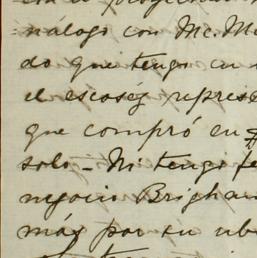 nálogo con Mc. M
do que tengo en
el escosez repres
que compró en $
solo - Ni tengo fe
negocio Brigha
más por su ub